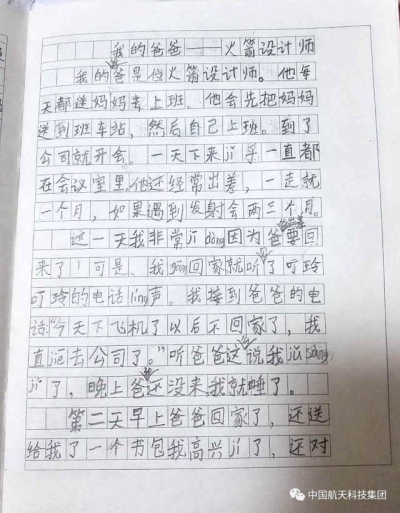 我的爸爸——火箭设计师
我的爸是位火箭设计师。他每
天都送妈妈去上班，他会先把妈妈
送到班车站，然后自己上班。到了
公司就开会。一天下来jī乎一直都
在会议室里，他还经常出差，一走就
一个月，如果遇到发射会两三个月。
这一天我非常jī dòng因为爸爸要回
来了！可是、我gāng回家就听了叮玲
叮玲的电话líng声。我接到爸爸的电
话“今天下飞机了以后不回家了，我
直接去公司了。”听爸爸这说我
jí了，晚上爸还没来，我就睡了。
第二天早上爸爸回家了，还送
给我了一个书包我高兴jí了，还对
中国航天科技集团